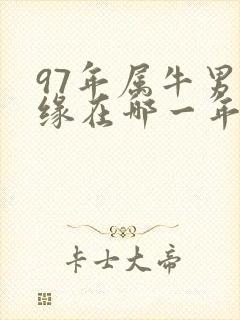 97年属牛男
缘在哪一年
卡士大帝